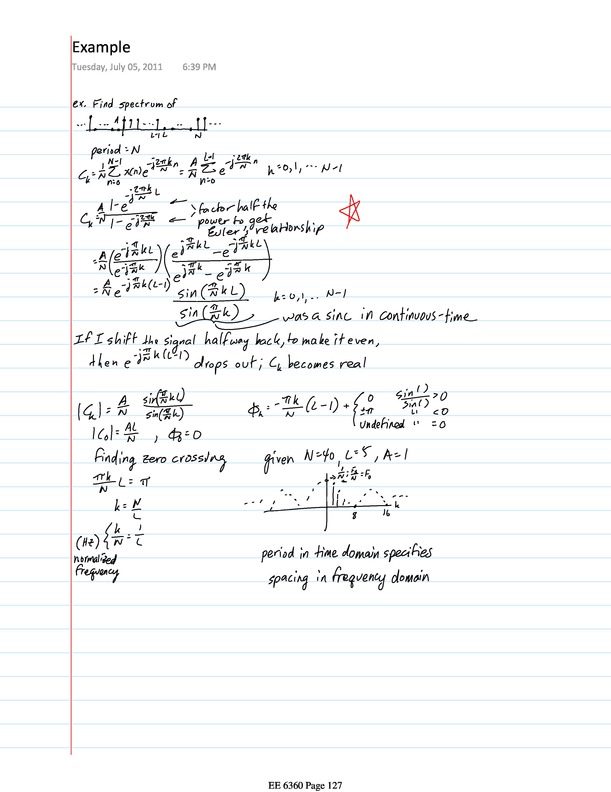 Example
Tuesday, July 05, 2011 6:39 PM
ex. Find spectrum of
... A ...
L-1 L N
period = N
C_k = 1/N Σ_{n=0}^{N-1} x(n) e^{-j2πk/N n} = A/N Σ_{n=0}^{L-1} e^{-j2πk/N n} k=0,1,... N-1
C_k = A/N (1-e^{-j2πk/N L})/(1-e^{-j2πk/N}) factor half the
power to get
Euler's relationship
= A/N (e^{-jπ/N kL}/e^{-jπ/N k}) ((e^{jπ/N kL} - e^{-jπ/N kL})/(e^{jπ/N k} - e^{-jπ/N k}))
= A/N e^{-jπ/N k(L-1)} sin(π/N kL)/sin(π/N k) k=0,1,.. N-1
was a sinc in continuous-time
If I shift the signal halfway back, to make it even,
then e^{-jπ/N k(L-1)} drops out; C_k becomes real
|C_k| = A/N sin(π/N kL)/sin(π/N k) ϕ_k = -πk/N (L-1) + { 0 sin( )/sin( ) > 0
±π " < 0
undefined " = 0
|C_0| = AL/N , ϕ_0 = 0
finding zero crossing given N=40, L=5, A=1
πk/N L = π
k = N/L
8 16 k
(Hz) { k/N = 1/L
normalized
frequency
period in time domain specifies
spacing in frequency domain
EE 6360 Page 127